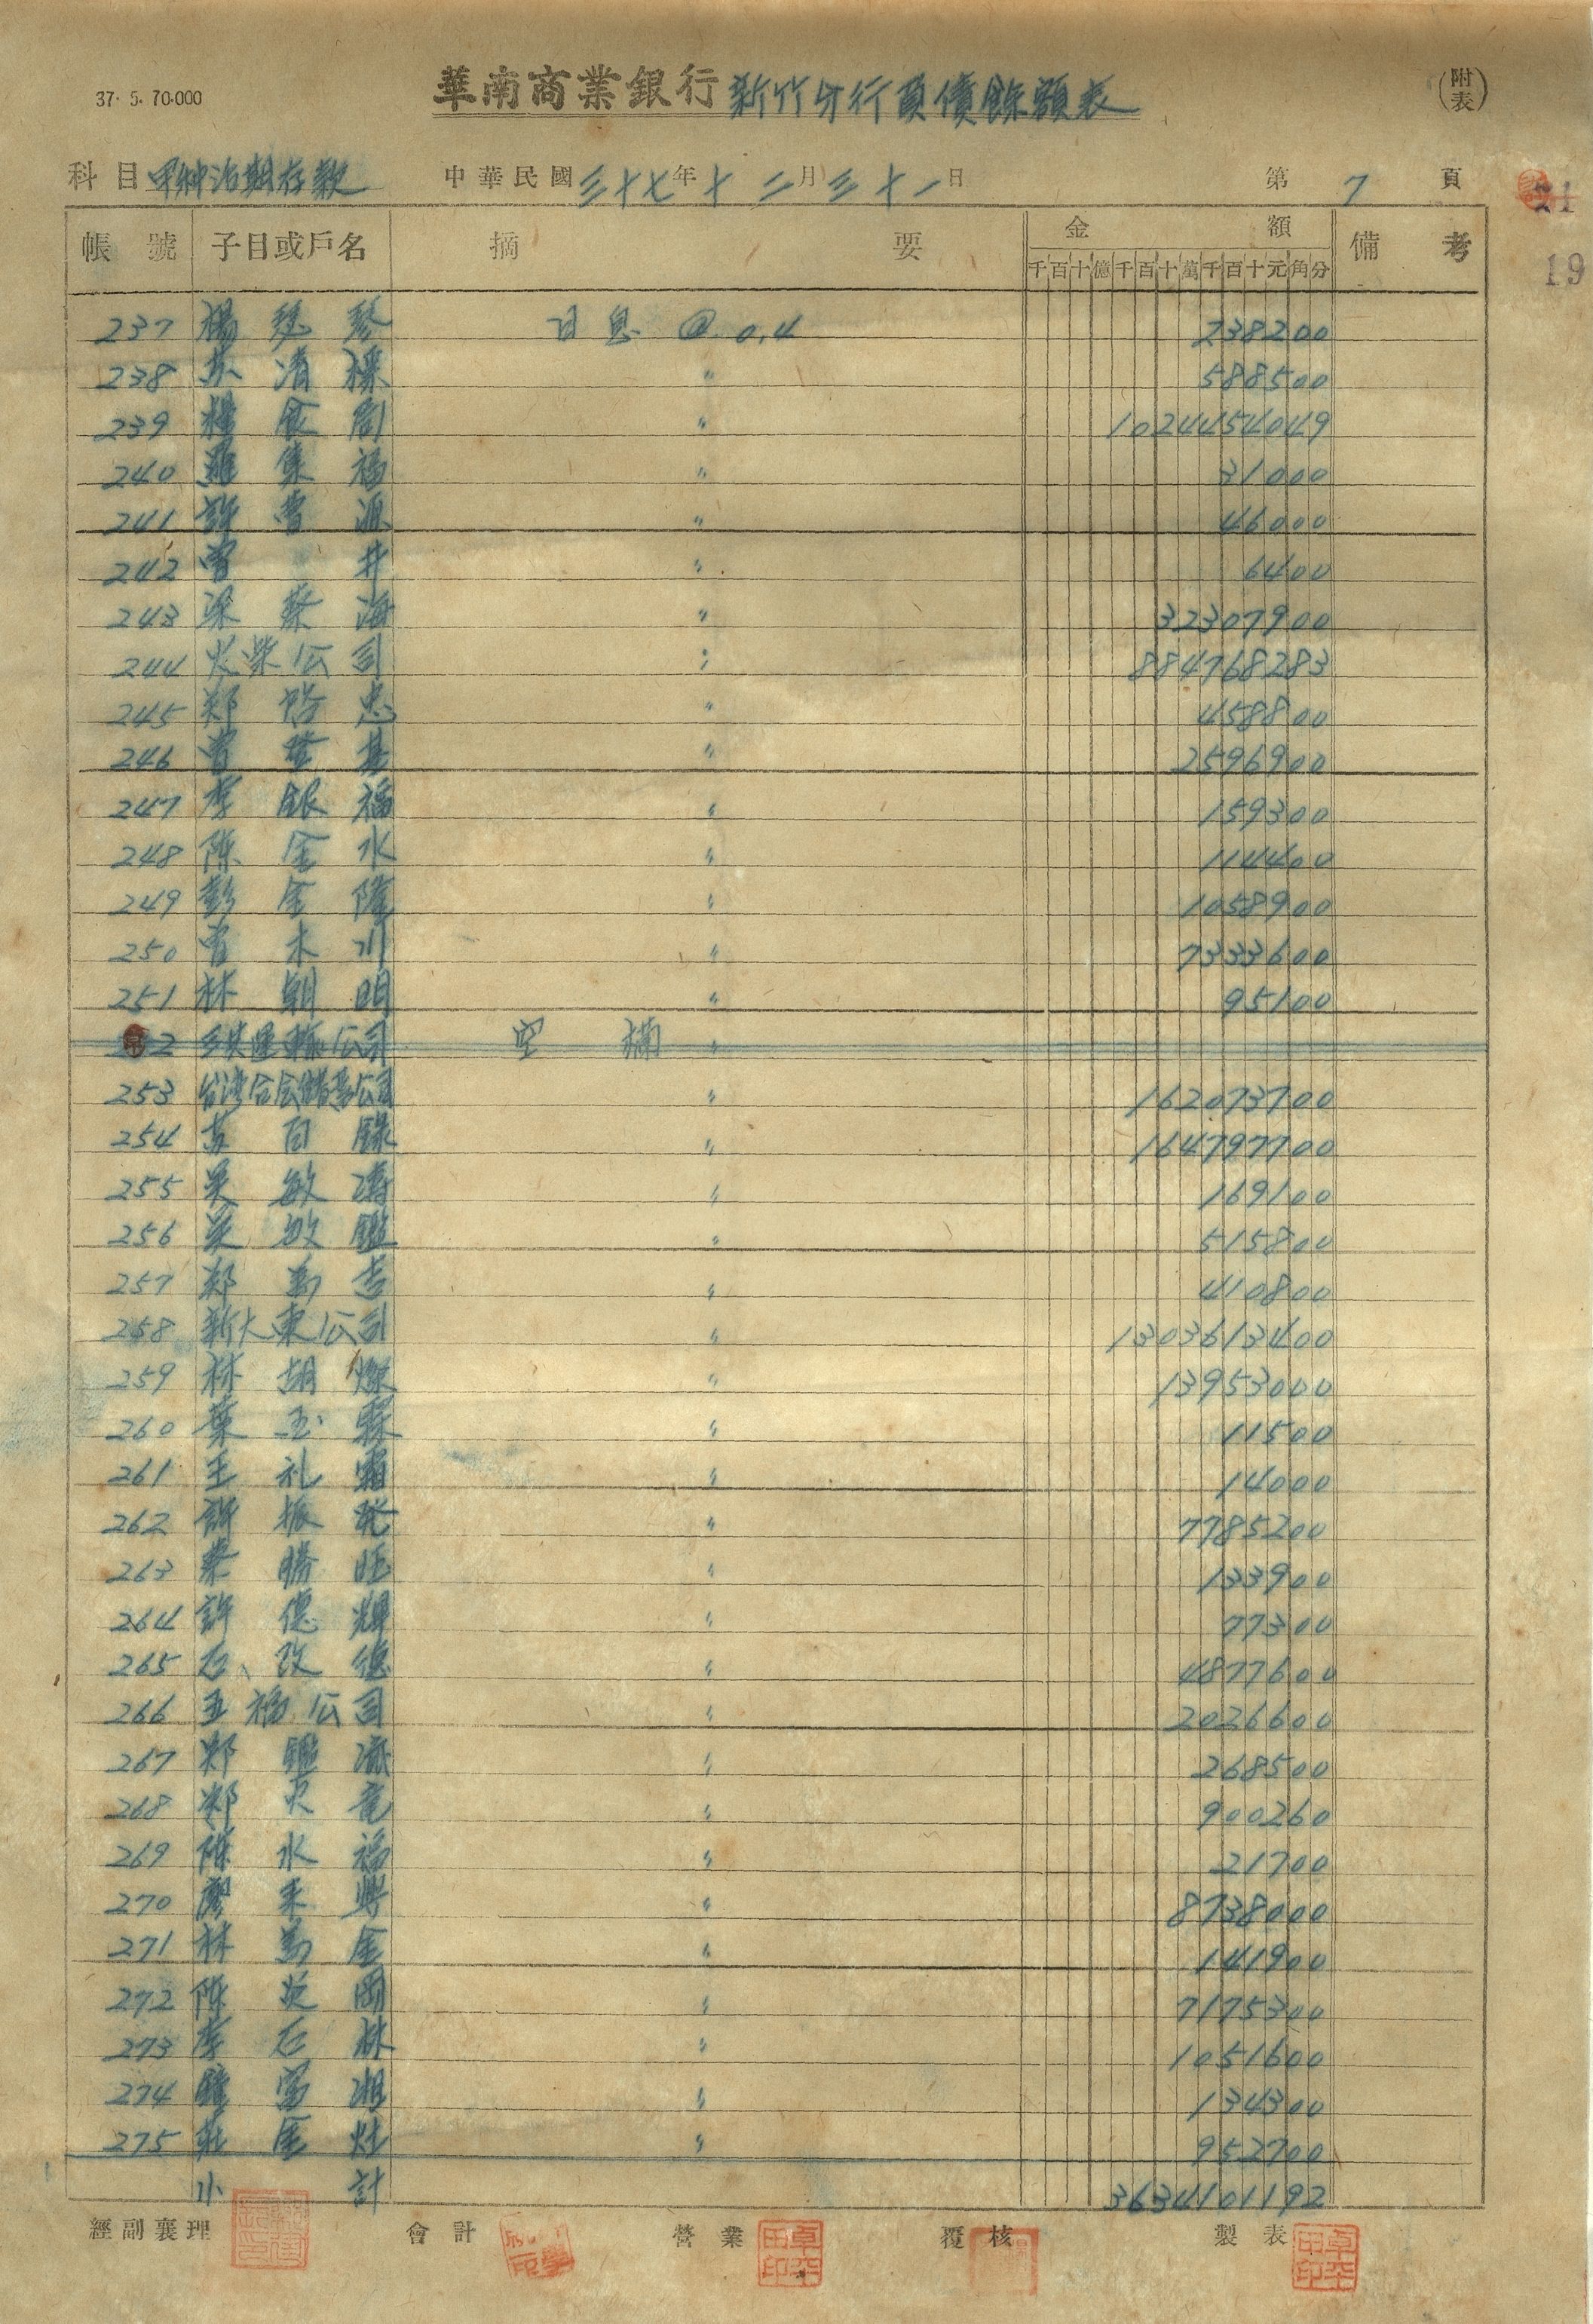 37. 5. 70.000
華南商業銀行新竹分行負債餘額表
(附表)
科目 甲种活期存款 中華民國三十七年十二月三十一日 第7頁
21
19
帳號 子目或戶名 摘要 金額 備考
千百十億千百十萬千百十元角分
237 楊 琴 日息 @ 0.4 238200
238 苏清標 〃 588500
239 楊食 〃 1024454049
240 羅集福 〃 31000
241 許曹源 〃 46000
242 曾井 〃 6400
243 梁蔡海 〃 32307900
244 火柴公司 〃 884768283
245 郑啓忠 〃 458800
246 曾登基 〃 2596900
247 李銀福 〃 159300
248 陈金水 〃 114400
249 彭金隆 〃 1058900
250 曾木川 〃 7333600
251 林朝明 〃 95100
252 運輸公司 空欄 〃
253 台湾合会儲蓄公司 〃 162073700
254 苏百錄 〃 164797700
255 吴敏濤 〃 169100
256 吴敏鑑 〃 515800
257 郑萬吉 〃 410800
258 新大東公司 〃 1303613400
259 林胡燦 〃 13953000
260 葉玉霖 〃 11500
261 王礼霜 〃 14000
262 許振発 〃 7785200
263 蔡勝旺 〃 133900
264 許德輝 〃 77300
265 石改德 〃 4877600
266 五福公司 〃 2026600
267 郑鑑 〃 268500
268 郑火竜 〃 900260
269 陳水福 〃 21700
270 廖来興 〃 8738000
271 林萬金 〃 141900
272 陈英岡 〃 7175300
273 李石林 〃 1051600
274 鍾 湘 〃 134300
275 莊金灶 〃 952700
小計 3634101192
經副襄理 會計 營業 覆核 製表
卓平田印
卓平田印